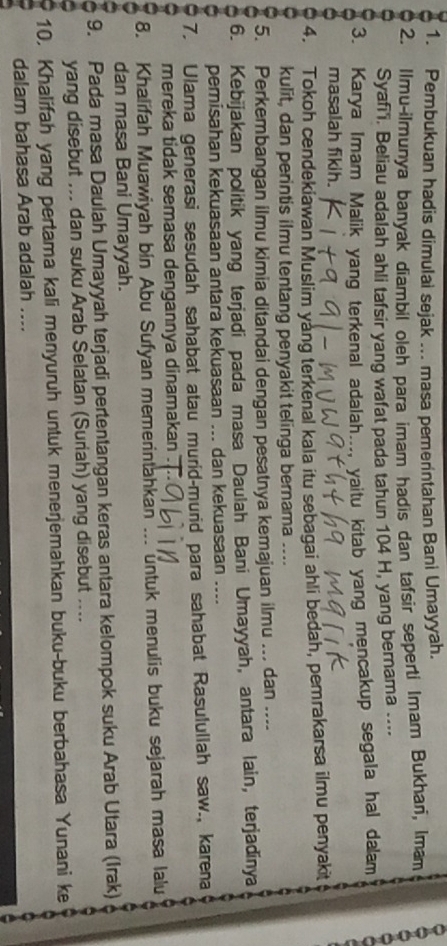 1. Pembukuan hadis dimulai sejak ... masa pemerintahan Bani Umayyah.
2. Ilmu-ilmunya banyak diambil oleh para imam hadis dan tafsir seperti Imam Bukhari, Imam
Syafi'i. Beliau adalah ahli tafsir yang wafat pada tahun 104 H, yang bernama ....
3. Karya Imam Malik yang terkenal adalah..., yaitu kitab yang mencakup segala hal dalam
masalah fikih. Kitab al-muwaththa malik
4. Tokoh cendekiawan Muslim yang terkenal kala itu sebagai ahli bedah, pemrakarsa ilmu penyakit
kulit, dan perintis ilmu tentang penyakit telinga bernama ....
5. Perkembangan ilmu kimia ditandai dengan pesatnya kemajuan ilmu ... dan ....
6. Kebijakan politik yang terjadi pada masa Daulah Bani Umayyah, antara lain, terjadinya
pemisahan kekuasaan antara kekuasaan ... dan kekuasaan ....
7. Ulama generasi sesudah sahabat atau murid-murid para sahabat Rasulullah saw., karena
mereka tidak semasa dengannya dinamakan Tabiin
8. Khalifah Muawiyah bin Abu Sufyan memerintahkan ... untuk menulis buku sejarah masa lalu
dan masa Bani Umayyah.
9. Pada masa Daulah Umayyah terjadi pertentangan keras antara kelompok suku Arab Utara (Irak)
yang disebut ... dan suku Arab Selatan (Suriah) yang disebut ....
10. Khalifah yang pertama kali menyuruh untuk menerjemahkan buku-buku berbahasa Yunani ke
dalam bahasa Arab adalah ....